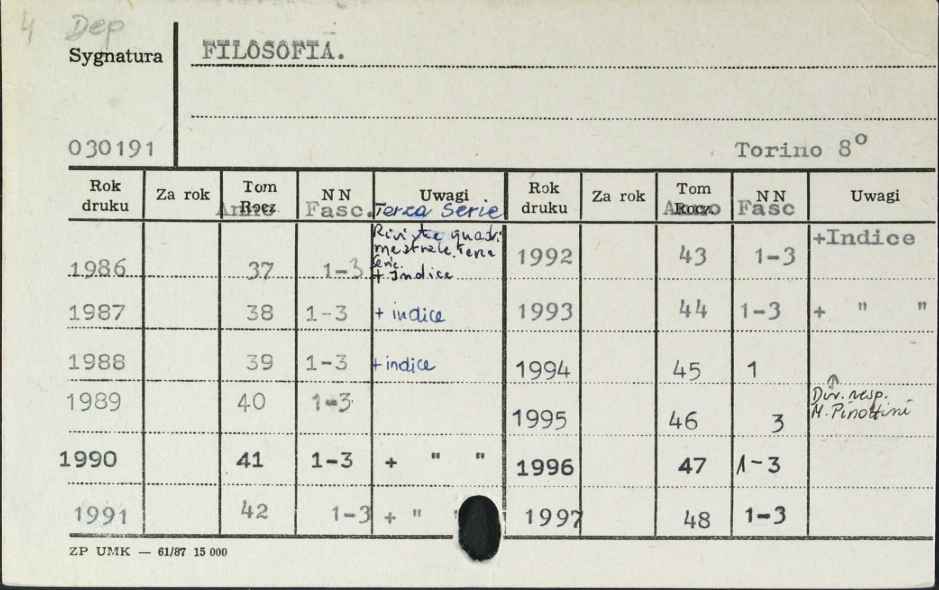 4 Dep
Sygnatura FILOSOFIA.
030191 Torino 8°
Rok druku Za rok Tom Rocz. NN Uwagi Rok druku Za rok Tom Rocz. NN Uwagi
Anno Fasc. Terza Serie Anno Fasc
1986 37 1-3 Rivista quadri
mestrale. Terza
serie.
+ Indice
1992 43 1-3 +Indice
1987 38 1-3 + indice 1993 44 1-3 + " "
1988 39 1-3 + indice 1994 45 1
1989 40 1-3 1995 46 3 Dir. resp.
M. Pinottini
1990 41 1-3 + " " 1996 47 1-3
1991 42 1-3 + " 1997 48 1-3
ZP UMK — 61/87 15 000